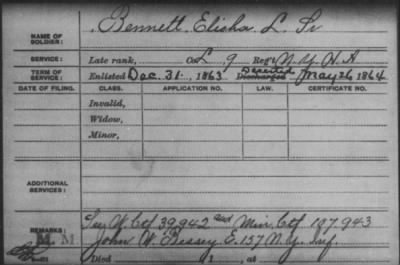 Bennett, Elisha L. Sr
NAME OF SOLDIER:
SERVICE: Late rank, Co. L, 9 Reg't N.Y. H.A
TERM OF SERVICE: Enlisted Dec. 31, 1863 Deserted Discharged May 26, 1864
DATE OF FILING. CLASS. APPLICATION NO. LAW. CERTIFICATE NO.
Invalid,
Widow,
Minor,
ADDITIONAL SERVICES:
REMARKS: See W. Ctf 39,942 and Min. Ctf. 187,943
John W. Bessey, E. 157 N.Y. Inf.
M M
Died , 1 , at